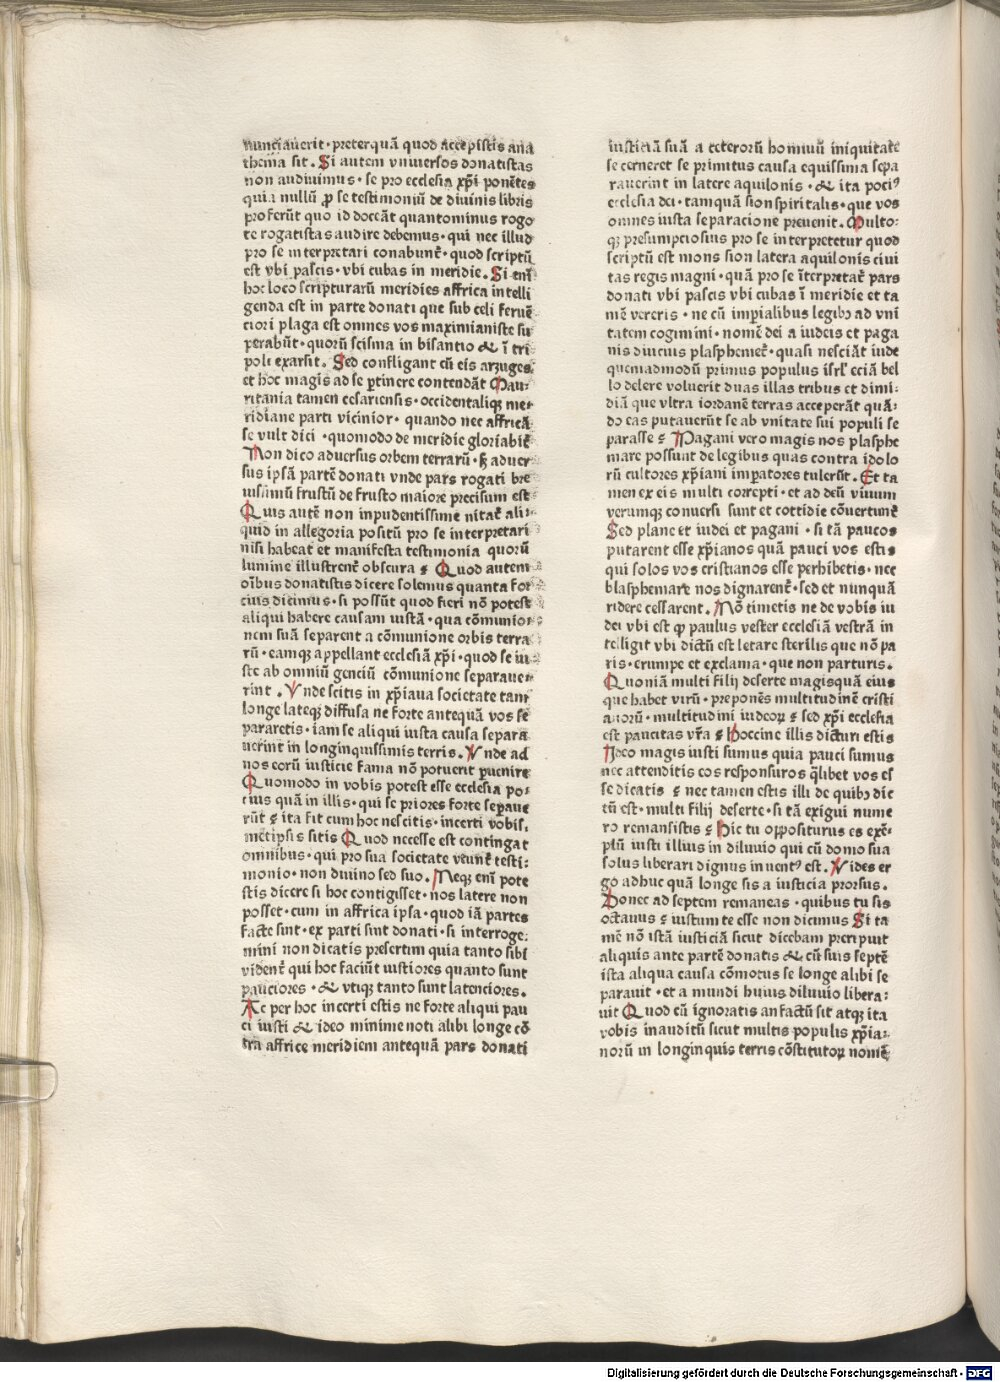 nunciauerit · preterquā quod accepistis ana
thema sit . Si autem vniuersos donatistas
non audiuimus · se pro ecclesia xp̄i ponētes
quia nullū ꝓ se testimoniū de diuinis libris
proferūt quo id doceāt quantominus rogo
te rogatistas audire debemus · qui nec illud
pro se interpretari conabunt̄ · quod scriptū
est vbi pascis · vbi cubas in meridie . Si enī
hoc loco scripturarū meridies affrica intelli
genda est in parte donati que sub celi feruē
ciori plaga est omnes vos maximianiste su
perabūt · quorū scisma in bisantio & ī tri
poli exarsit . Sed confligant cū eis arzuges
et hoc magis ad se ꝑtinere contendāt Mau
ritania tamen cesariensis · occidentaliqꝫ me
ridiane parti vicinior · quando nec affricā
se vult dici · quomodo de meridie gloriabit̄
Non dico aduersus orbem terrarū · sꝫ aduer
sus ipsā partē donati vnde pars rogati bre
uissimū frustū de frusto maiore precisum est
Quis autē non inpudentissime nitat̄ ali
quid in allegoria positū pro se interpretari
nisi habeat et manifesta testimonia quorū
lumine illustrent̄ obscura ɛ Quod autem
oībus donatistis dicere solemus quanta for
cius dicimus · si possūt quod fieri nō potest
aliqui habere causam iustā · qua cōmunio
nem suā separent a cōmunione orbis terra
rū · eamqꝫ appellant ecclesiā xp̄i · quod se iu
ste ab omniū genciū cōmunione separaue
rint . Vnde scitis in xp̄iana societate tam
longe lateqꝫ diffusa ne forte antequā vos se
pararetis · iam se aliqui iusta causa separa
uerint in longinquissimis terris . Vnde ad
nos eorū iusticie fama nō potuerit ꝑuenire
Quomodo in vobis potest esse ecclesia po
tius quā in illis · qui se priores forte sepaue
rūt ɛ ita fit cum hoc nescitis · incerti vobis
metipsis sitis Quod necesse est contingat
omnibus · qui pro sua societate veunt̄ testi:
monio · non diuino sed suo . Neqꝫ enī pote
stis dicere si hoc contigisset · nos latere non
posset · cum in affrica ipsa · quod iā partes
facte sint · ex parti sint donati · si interroge:
mini non dicatis presertim quia tanto sibi
vident̄ qui hoc faciūt iustiores quanto sunt
pauciores · & vtiqꝫ tanto sunt latenciores .
Ac per hoc incerti estis ne forte aliqui pau
ci iusti & ideo minime noti alibi longe cō
tra affrice meridiem antequā pars donati
iusticiā suā a ceterorū hominū iniquitate
se cerneret se primitus causa equissima sepa
rauerint in latere aquilonis · & ita pociꝰ
ecclesia dei · tamquā sion spiritalis · que vos
omnes iusta separacione preuenit . Multo:
qꝫ presumpciosius pro se interpretetur quod
scriptū est mons sion latera aquilonis ciui
tas regis magni · quā pro se īterpretat̄ pars
donati vbi pascis vbi cubas ī meridie et ta
mē vereris · ne cū imꝑialibus legibꝫ ad vni
tatem cogimini · nomē dei a iudeis et paga
nis diucius plasphemet̄ · quasi nesciāt iude
quemadmodū primus populus isrl' eciā bel
lo delere voluerit duas illas tribus et dimi:
diā que vltra iordanē terras acceperāt quā:
do eas putauerūt se ab vnitate sui populi se
parasse ɛ Pagani vero magis nos plasphe
mare possunt de legibus quas contra idolo
rū cultores xp̄iani imꝑatores tulerūt . Et ta
men ex eis multi correpti · et ad deū viuum
verumqꝫ conuersi sunt et cottidie cōuertunt̄
Sed plane et iudei et pagani · si tā paucos
putarent esse xp̄ianos quā pauci vos estis
qui solos vos cristianos esse perhibetis · nec
blasphemare nos dignarent̄ · sed et nunquā
ridere cessarent . Nō timetis ne de vobis iu
dei vbi est qꝫ paulus vester ecclesiā vestrā in
telligit vbi dictū est letare sterilis que nō pa
ris · erumpe et exclama · que non parturis .
Quoniā multi filij deserte magisquā eius
que habet virū · preponēs multitudinē cristi
anorū · multitudini iudeoꝝ ɛ sed xp̄i ecclesia
est paucitas vr̄a ɛ Hoccine illis dicturi estis
Ideo magis iusti sumus quia pauci sumus
nec attenditis eos responsuros q̄libet vos es
se dicatis ɛ nec tamen estis illi de quibꝫ dic
tū est · multi filij deserte · si tā exigui nume
ro remansistis ɛ Hic tu oppositurus es exē
plū iusti illius in diluuio qui cū domo sua
solus liberari dignus inuentꝰ est . Vides er
go adhuc quā longe sis a iusticia prorsus .
Donec ad septem remaneas · quibus tu sis
octauus ɛ iustum te esse non dicimus Si ta
mē nō istā iusticiā sicut dicebam preripuit
aliquis ante partē donatis & cū suis septē
ista aliqua causa cōmotus se longe alibi se
parauit · et a mundi huius diluuio libera:
uit Quod cū ignoratis an factū sit atqꝫ ita
vobis inauditū sicut multis populis xp̄ia:
norū in longinquis terris cōstitutoꝝ nomē
Digitalisierung gefördert durch die Deutsche Forschungsgemeinschaft · DFG